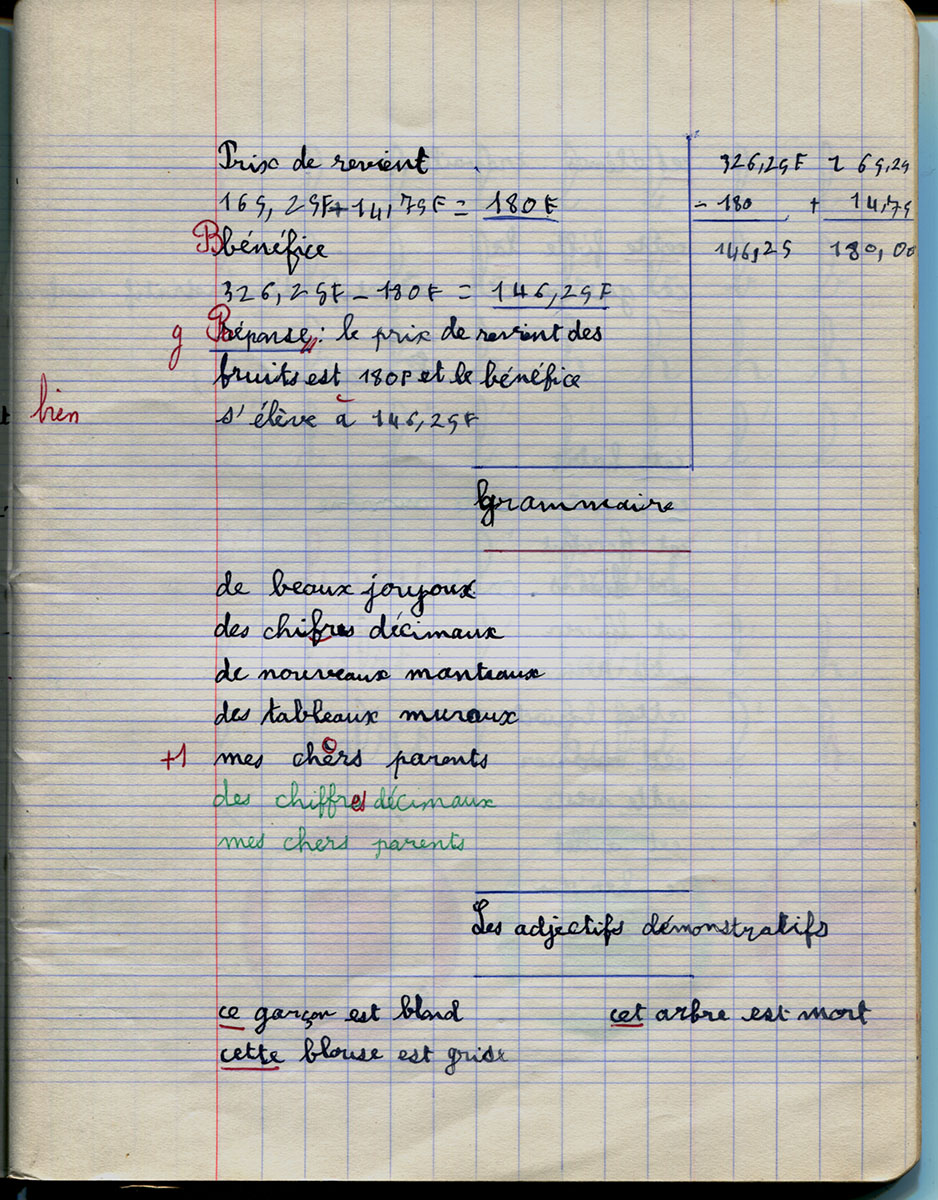 Prix de revient
165,25F + 14,75F = 180F
Bbénéfice
326,25F - 180F = 146,25F
g Réponse : le prix de revient des
fruits est 180F et le bénéfice
bien s'élève à 146,25F
326,25F
- 180
146,25
165,25
+ 14,75
180,00
Grammaire
de beaux joyoux
des chifres décimaux
de nouveaux manteaux
des tableaux muraux
+1 mes chers parents
des chiffres décimaux
mes chers parents
Les adjectifs démonstratifs
ce garçon est blond cet arbre est mort
cette blouse est grise